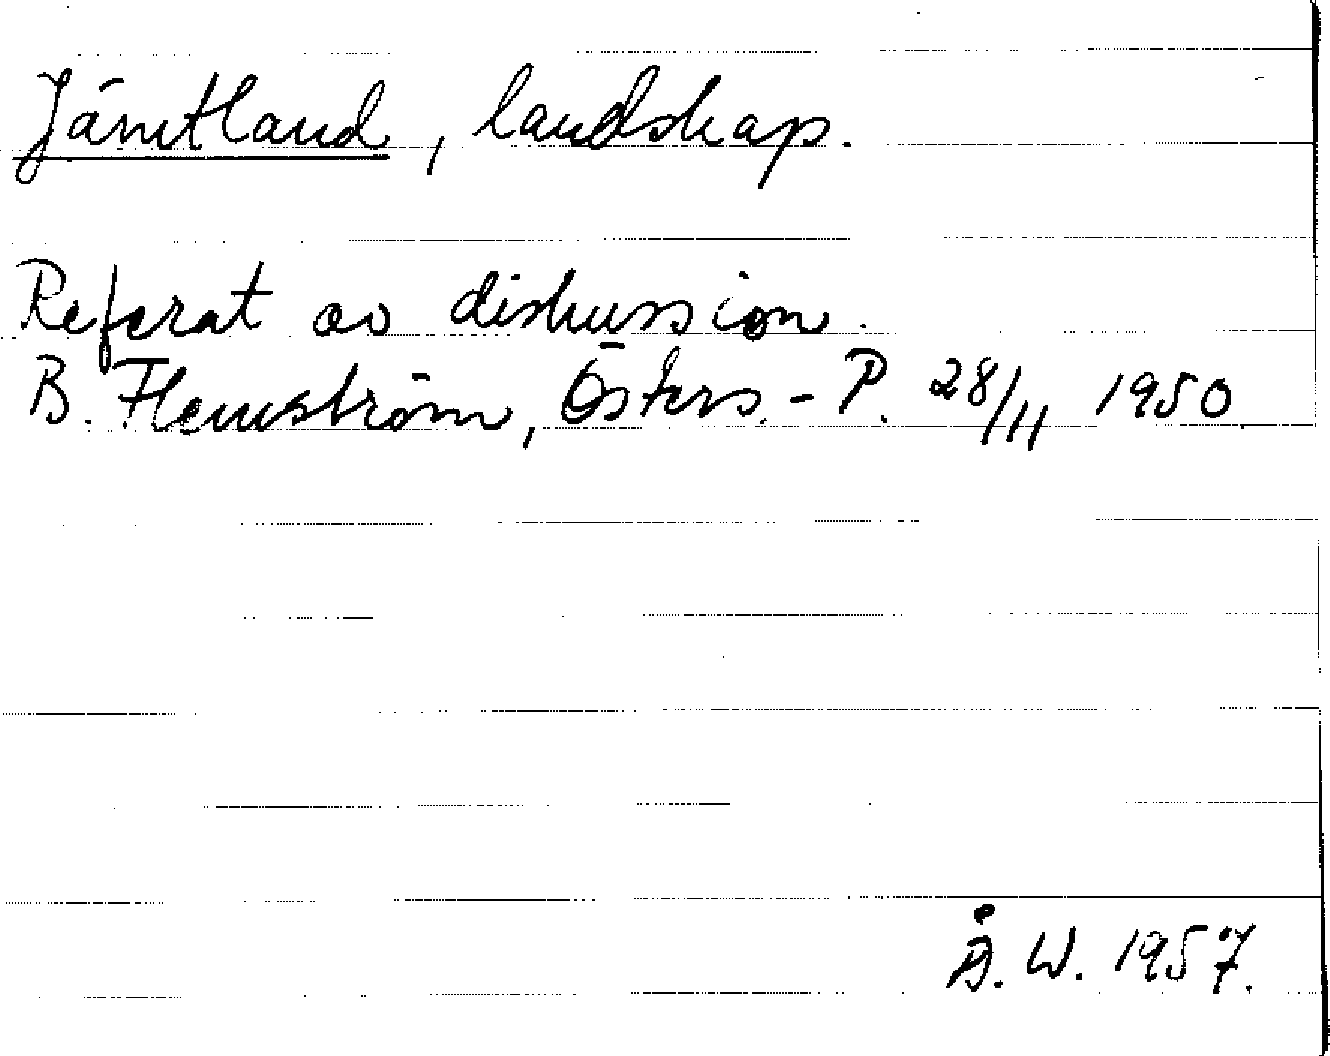 Jämtland, landskap.
Referat av diskussion.
B. Flemström, Östers.-P. 28/11 1950.
Å.W. 1957.